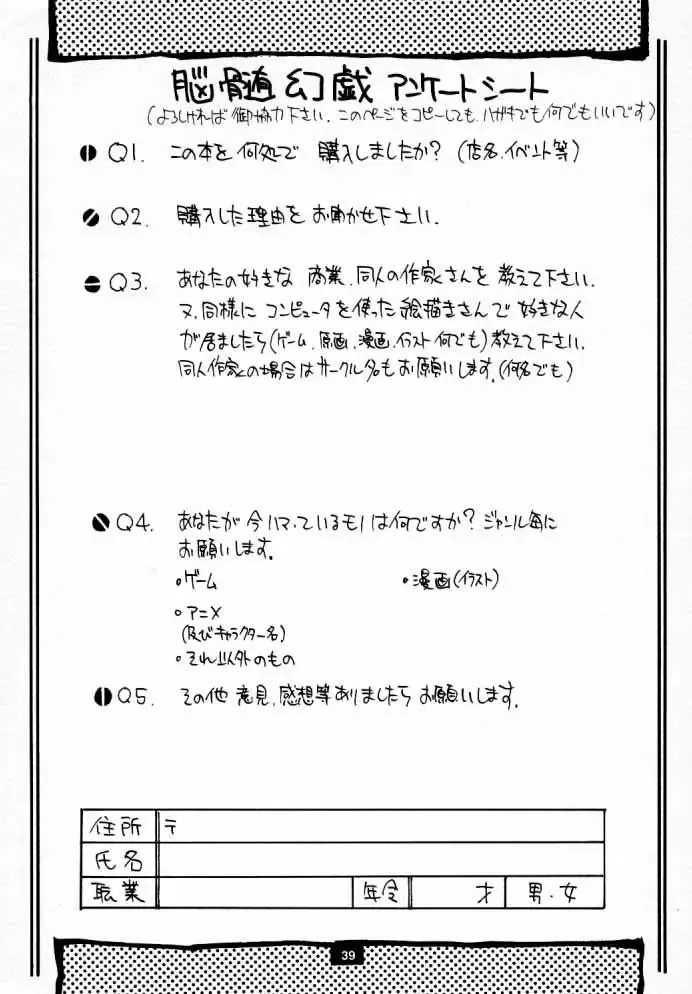 脳髄幻戯 アンケートシート
(よろしければ御協力下さい.このページをコピーしても、ハガキでも何でもいいです)
Q1. この本を何処で 購入しましたか?(店名.イベント等)
Q2. 購入した理由を お聞かせ下さい.
Q3. あなたの好きな 商業.同人の作家さんを 教えて下さい.
又.同様に コンピュータを使った絵描きさんで 好きな人
が居ましたら(ゲーム.原画.漫画.イラスト 何でも)教えて下さい.
同人作家の場合はサークル名もお願いします.(何名でも)
Q4. あなたが 今ハマっているモノは何ですか?ジャンル毎に
お願いします.
・ゲーム ・漫画(イラスト)
・アニメ
(及びキャラクター名)
・それ以外のもの
Q5. その他 意見.感想等ありましたら お願いします.
住所 〒
氏名
職業 年令 才 男・女
39